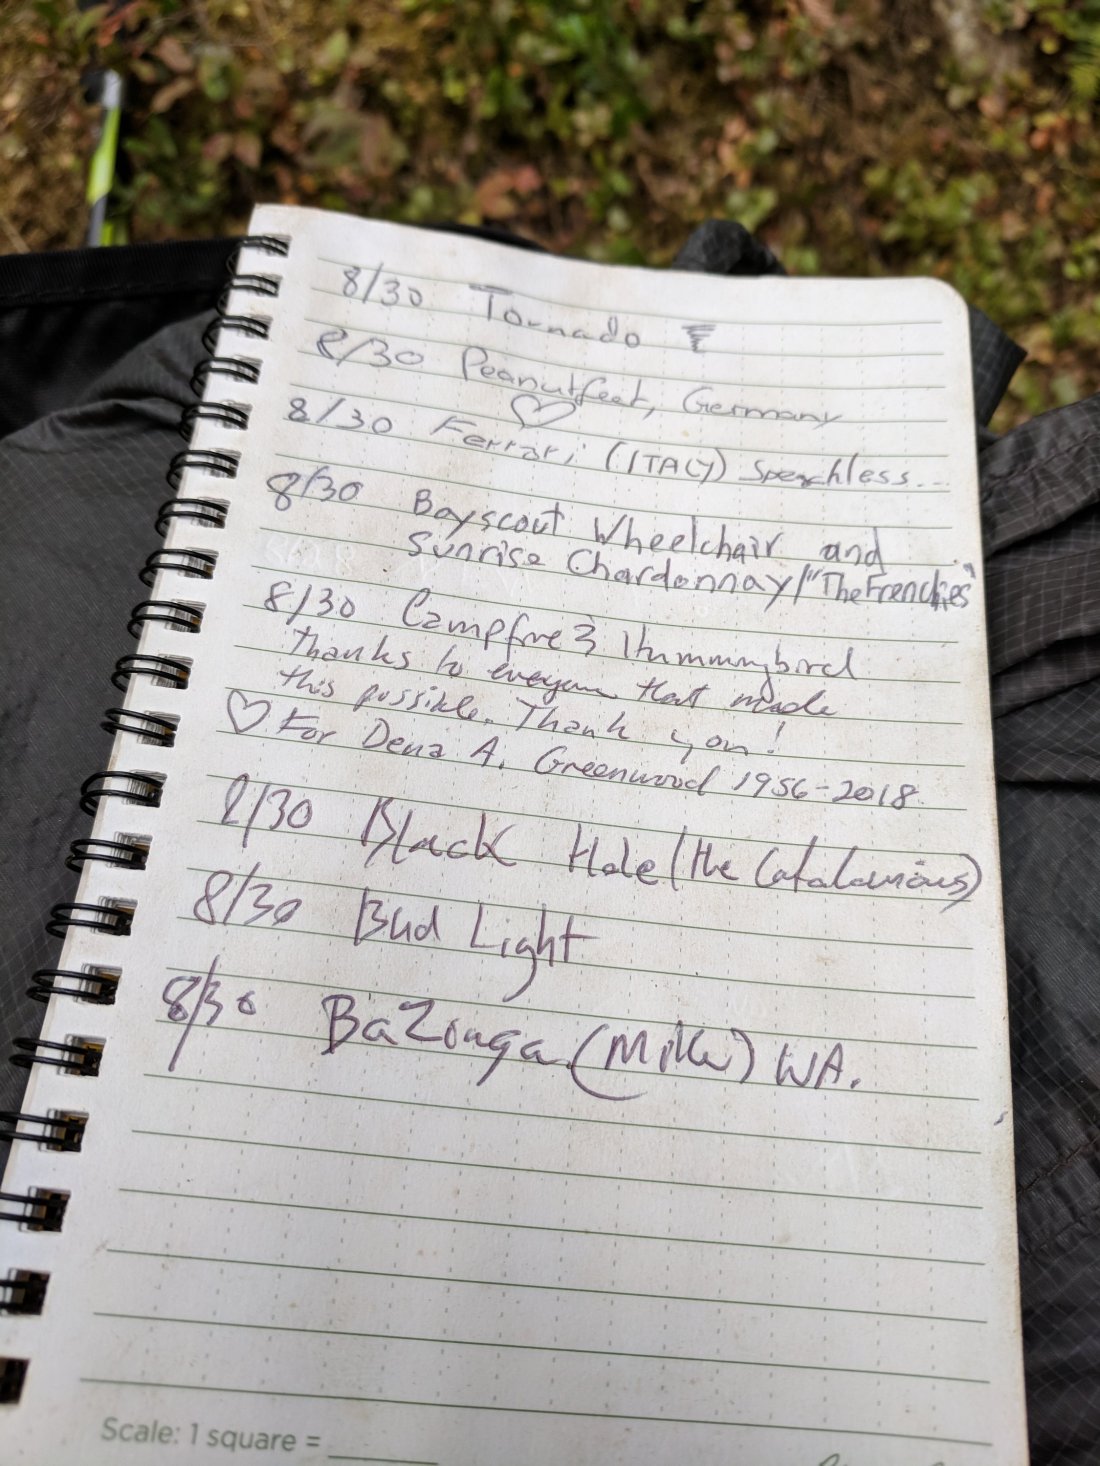 8/30 Tornado
8/30 Peanutfeet, Germany
8/30 Ferrari (ITALY) Speechless...
8/30 Boyscout Wheelchair and
Sunrise Chardonnay/"The Frenchies"
8/30 Campfire & Hummingbird
Thanks to everyone that made
this possible. Thank you!
♡ For Dena A. Greenwood 1956-2018
8/30 Black Hole (the Catalonians)
8/30 Bud Light
8/30 BaZonga (Mike) WA.
Scale: 1 square =